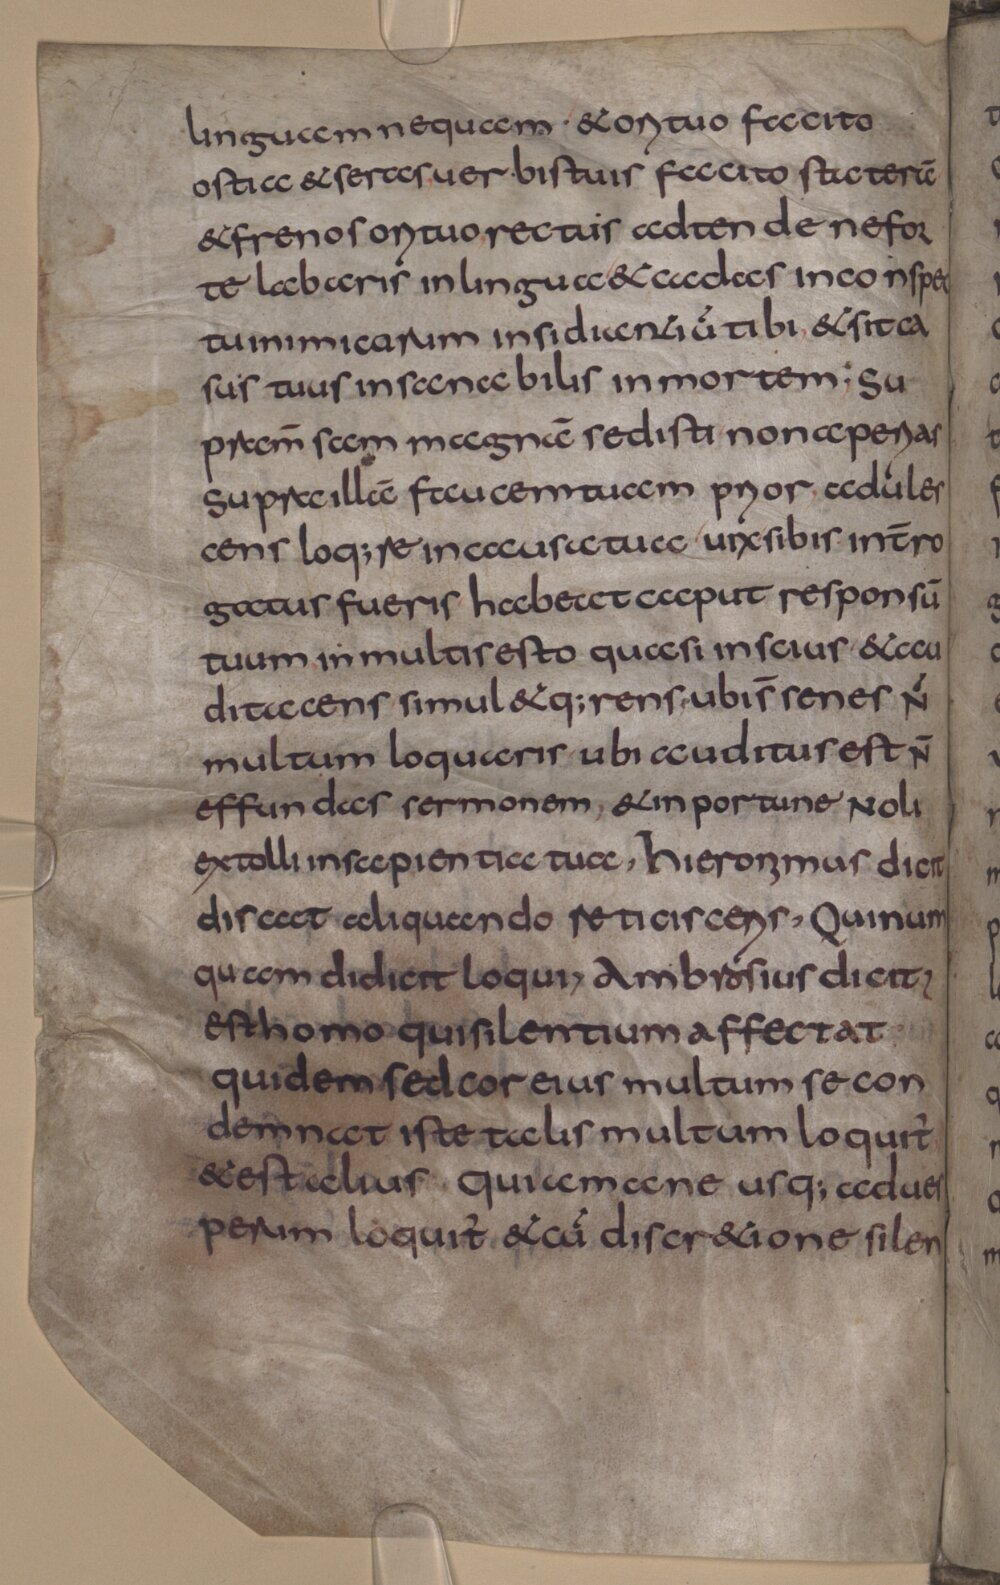 linguam nequam · & ori tuo facito
ostia & seras, uer·bis tuis facito staterā
& frenos ori tuo, rectus adtende ne for
te labaris in lingua & cadas in conspec
tu inimicorum insidiantiū tibi, & sit ca
sus tuus insanabilis in mortem; Su
pra m̄ sam magnā sedisti non aperias
supra illā faucem tuam prior, adules
cens loq; re in causa tua uix si bis int̄ro
gatus fueris habeat caput responsū
tuum, in multis esto quasi inscius & au
di tacens simul & q; rens, ubi s̄ senes N̄
multum loquaris ubi auditus est N̄
effundas sermonem, & inportune Noli
extolli in sapientia tua, hieronimus dicit
discat aliquando reticiscens, Qui num
quam didicit loqui, Ambrosius dicit,
est homo qui silentium affectat
quidem sed cor eius multum se con
demnat iste talis multum loquit̄
& est alius qui a mane usq; ad ues
perum loquit̄ & cū discr&ione silen